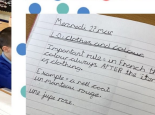 Mercredi 27 mar
L.O: clothes and colours
Important rule: in French, the
colour always AFTER the item
of clothing.
Example: a red coat
un manteau rouge.
une jupe rose.